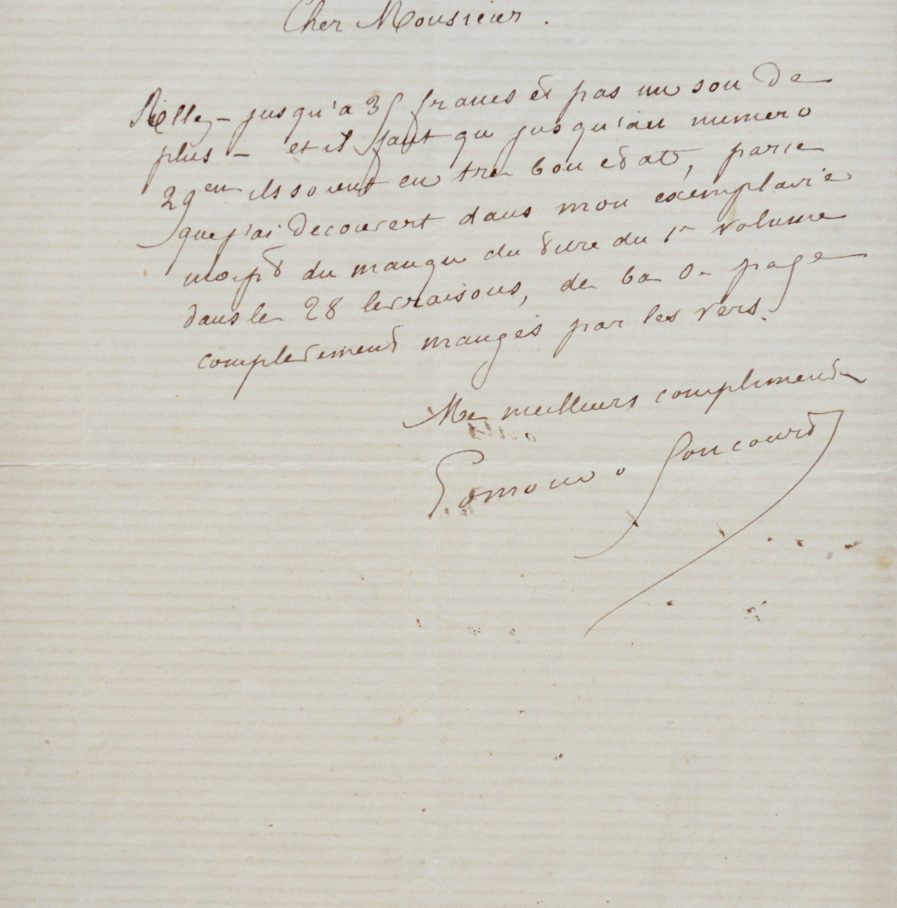 Cher Monsieur.
Allez – jusqu'à 35 francs et pas un sou de
plus – et il faut qu jusqu'au numero
29en ils soient en tres bon etat, parce
que j'ai decouvert dans mon exemplaire
du manque du titre du 1r volume
dans les 28 livraisons, de 6 a page
completement mangés par les vers.
Mes meilleurs compliments
Edmond de Goncourt